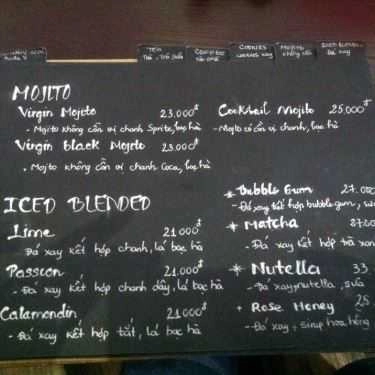 TEA
COOKIES
MOJITO
Virgin Mojito 23.000đ
- Mojito không cồn vị chanh Sprite, bạc hà
Virgin Black Mojito 23.000đ
- Mojito không cồn vị chanh Coca, bạc hà
Cocktail Mojito 25.000đ
- Mojito có cồn vị chanh, bạc hà
ICED BLENDED
Lime 21.000đ
- Đá xay kết hợp chanh, lá bạc hà
Passion 21.000đ
- Đá xay kết hợp chanh dây, lá bạc hà
Calamondin 21.000đ
- Đá xay kết hợp tắt, lá bạc hà
* Bubble Gum 27.000
- Đá xay kết hợp bubble gum,
* Matcha
- Đá xay kết hợp trà xanh
* Nutella 33
- Đá xay, nutella, sữa
+ Rose Honey 25
- Đá xay, sirup hoa hồng